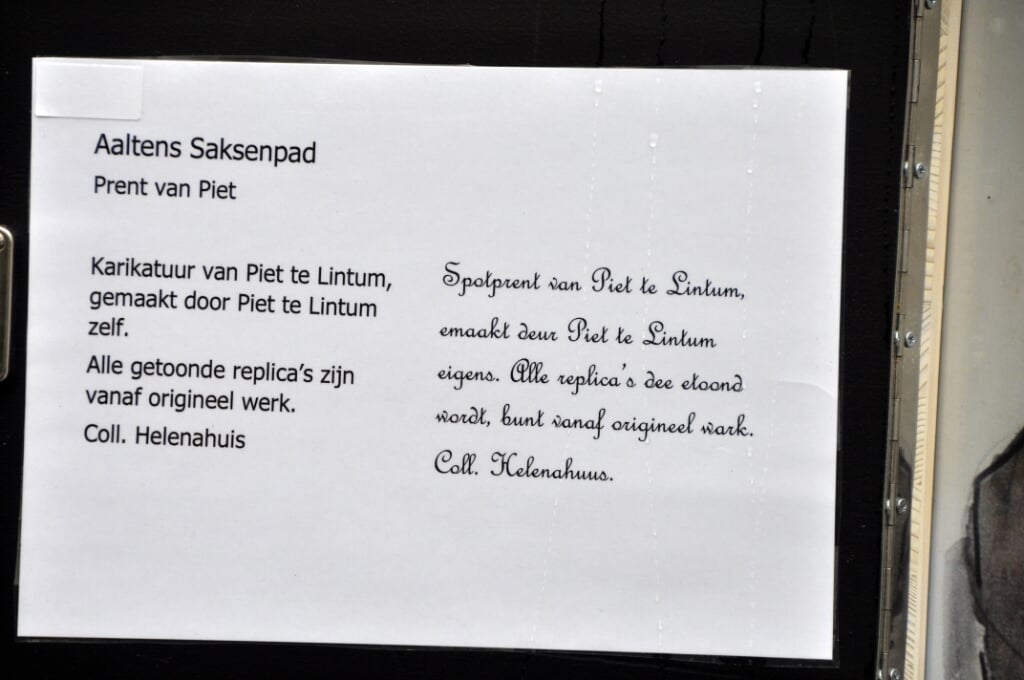 Aaltens Saksenpad
Prent van Piet
Karikatuur van Piet te Lintum,
gemaakt door Piet te Lintum
zelf.
Alle getoonde replica's zijn
vanaf origineel werk.
Coll. Helenahuis
Spotprent van Piet te Lintum,
emaakt deur Piet te Lintum
eigens. Alle replica's dee etoond
wordt, bunt vanaf origineel wark.
Coll. Helenahuus.